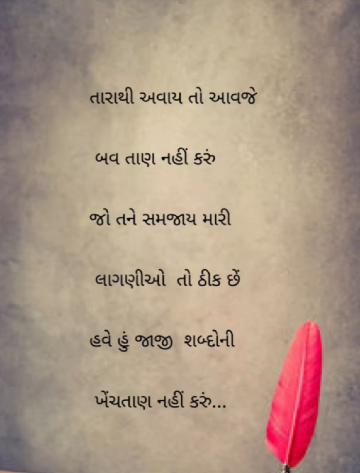 તારાથી અવાય તો આવજે
બવ તાણ નહીં કરું
જો તને સમજાય મારી
લાગણીઓ તો ઠીક છેં
હવે હું જાજી શબ્દોની
ખેંચતાણ નહીં કરું...